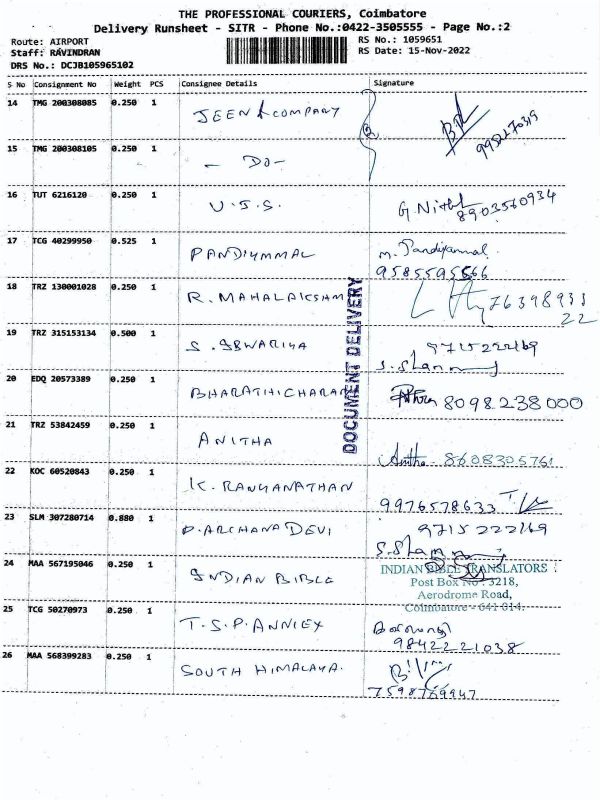 THE PROFESSIONAL COURIERS, Coimbatore
Delivery Runsheet - SITR - Phone No.:0422-3505555 - Page No.:2
Route: AIRPORT
RS No.: 1059651
Staff: RAVINDRAN
RS Date: 15-Nov-2022
DRS No.: DCJB105965102
S No Consignment No Weight PCS Consignee Details Signature
14 TMG 200308085 0.250 1 JEEN & COMPANY
995270319
15 TMG 200308105 0.250 1 - DO -
16 TUT 6216120 0.250 1 U.S.S. G. Nithl
8903560934
17 TCG 40299950 0.525 1 PANDIYMMAL M. Pandiyammal
9585595566
18 TRZ 130001028 0.250 1 R. MAHALAKSHAM 76398933
22
19 TRZ 315153134 0.500 1 S. ISWARIYA 9715222169
S. Sham
20 EDQ 20573389 0.250 1 BHARATHICHARAN 8098238000
21 TRZ 53842459 0.250 1 ANITHA
Anitha 8608305761
22 KOC 60520843 0.250 1 K. RANGANATHAN
9976578633
23 SLM 307280714 0.880 1 P. ARCHANA DEVI 9715222169
S. Sham
24 MAA 567195046 0.250 1 INDIAN BIBLE INDIAN BIBLE TRANSLATORS
Post Box No : 3218,
Aerodrome Road,
Coimbatore - 641 014.
25 TCG 50270973 0.250 1 T.S.P. ANNIEX
9842221038
26 MAA 568399283 0.250 1 SOUTH HIMALAYA.
7598769947
DOCUMENT DELIVERY